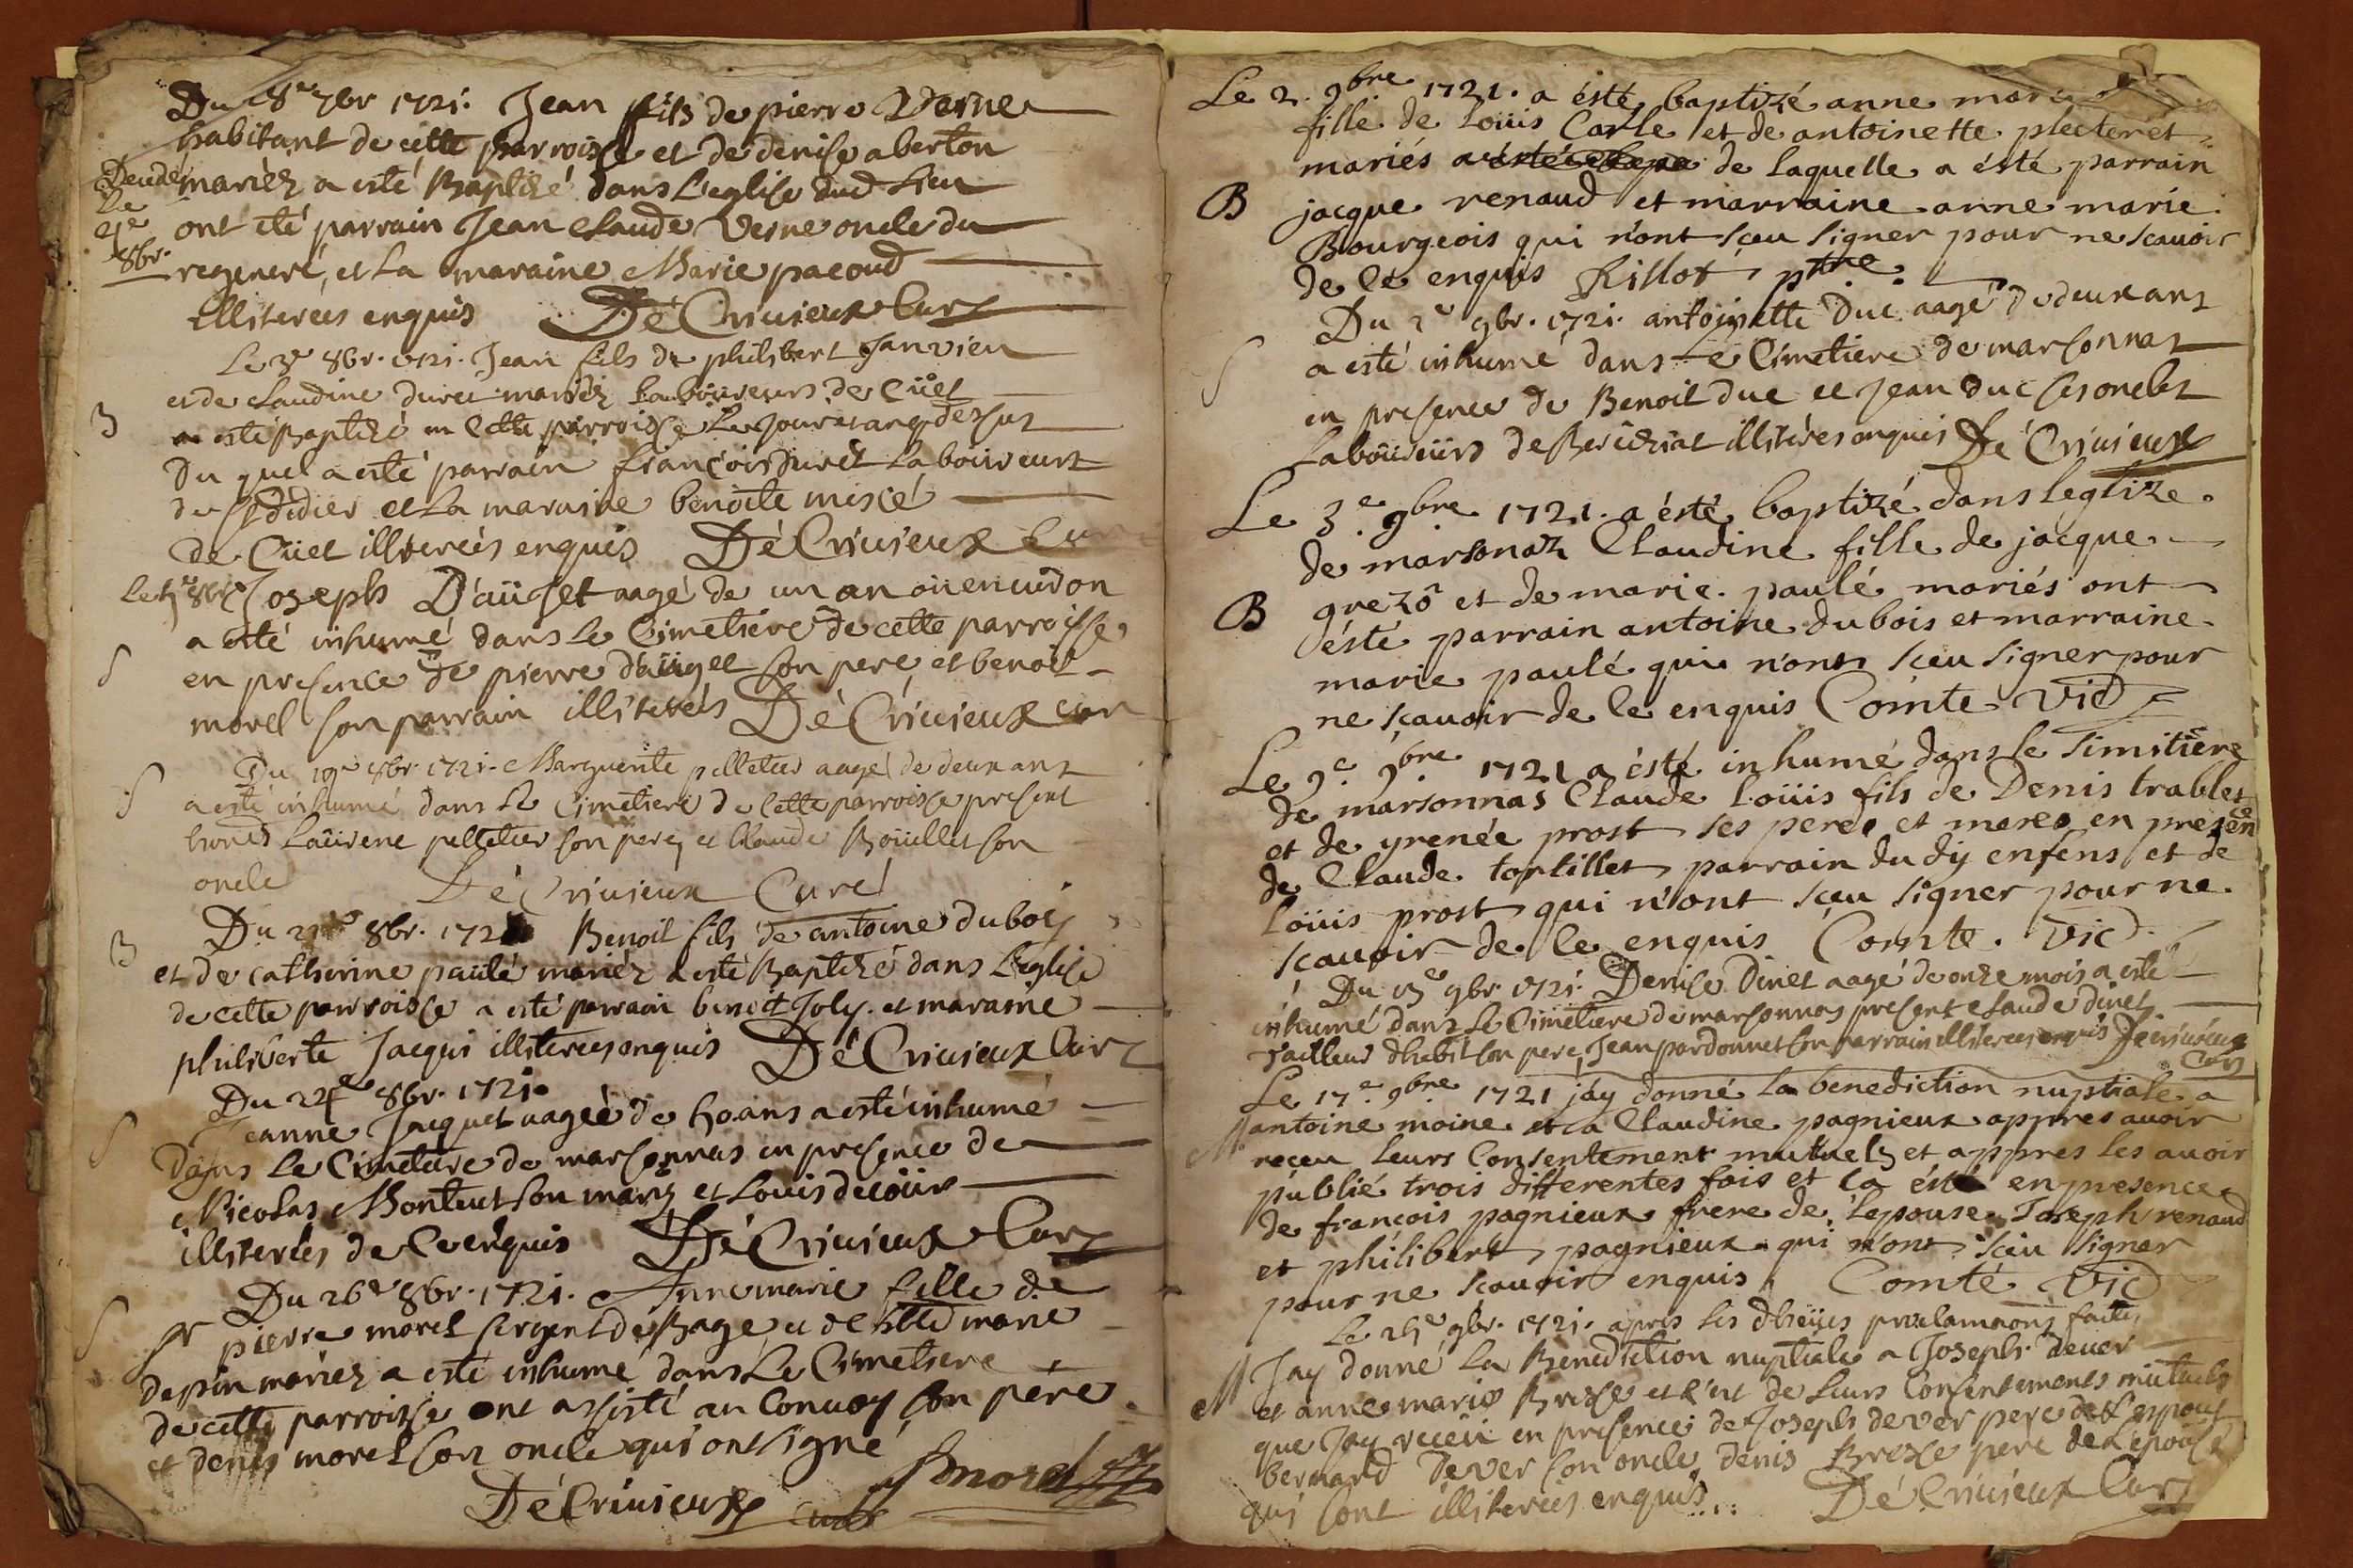 Du 28e 7br 1721. Jean fils de pierre Verne
habitant de cette parroisse et de denise aberton
mariéz a esté Baptizé dans L'eglise dud Lieu
ont eté parrain Jean Claude Verne oncle du
8br.
regeneré, et la maraine Marie pacoud
illiterées enquis DéCriuieux Curé
Le 3e 8br. 1721. Jean fils de philibert Janvier
et de Claudine duret mariéz Laboureurs de Cüet
B
a esté Baptizé en Cette parroisse Le jour et an dessus
du quel a esté parrain françois duret Laboureur
de St didier et La maraine benoite
de Cüet illiterées enquis DéCriuieux Cur
Joseph Daüget aagé de un an ou enuiron
a esté inhumé dans Le Cimetiere de cette parroisse
S
en presence de pierre daüget son pere, et benoit
morel son parrain illiterés DéCriuieux cur
Du 19e 8br. 1721. Marguerite pelletier aagé de deux ans
S
a esté inhumé dans Le Cimetiere de Cette parroisse present
Laürent pelletier son pere, et Claude Boüillet son
oncle DéCriuieux Curé
Du 8br. 172 Benoit fils de antoine dubois
B
et de catherine paülé mariéz a esté Baptizé dans L'eglise
de cette parroisse a esté parrain benoit Joly. et maraine
philiberte Jacqui illiterees enquis DéCriuieux Curé
Du 22e 8br. 1721.
Jeanne Jacquet aageé de 50 ans a esté inhumé
S
Dans Le Cimetiere de marsonnas en presence de
Nicolas Monteut son mary et Louis decöur
illiterées de Ce enquis DéCriuieux Curé
Du 26e 8br. 1721. Annemarie fille de
S
Sr pierre morel sergent de Bagé, et de marie
depin mariéz a esté inhumé dans Le Cimetiere
de cette parroisse ont assisté au Conuoy son pere
et denis morel son oncle qui ont signé
DéCriuieux curé morel
Le 2. 9bre 1721. a ésté baptizé anne marie
fille de Loüis Carle et de antoinette plecteret
mariés de laquelle a ésté parrain
B
jacque renaud et marraine anne marie
Bourgeois qui n'ont sceu signer pour ne scauoir
de ce enquis Rillot ptre.
Du 2e 9br. 1721. antoinette Duc aagé de deux ans
S
a esté inhumé dans Le Cimetiere de marsonnas
en presence de Benoit duc et Jean Duc ses oncles
Laboüreürs de Bereiziat illiterées enquis DéCriuieux
Le 3e 9bre 1721. a ésté baptizé dans leglize
de marsonaz Claudine fille de jacque
B
grezo et de marie paulé mariés ont
ésté parrain antoine dubois et marraine
marie paulé qui n'ont sceu signer pour
ne scauoir de ce enquis Comte Vic
Le 9e 9bre 1721 a ésté inhumé dans le simitière
de marsonnas Claude Loüis fils de Denis trablet
et de grenée prost ses pere et mere en presence
de Claude tortillet parrain du dij enfens et de
Loüis prost qui n'ont sceu signer pour ne
scauoir de ce enquis Comte. Vic
Du 13e 9br. 1721. Denise Dinet aagé de onze mois a esté
inhumé dans Le Cimetiere de marsonnas present Claude dinet
Tailleur d'habit son pere, Jean pardonnet son parrain illiterees enquis DeCriuieux
Curé
Le 17e 9bre 1721 j'ay donné la benediction nuptiale a
M
antoine moine et a Claudine pagnieux appres auoir
receu leurs Consentement mutuels et appres les auoir
publié trois differentes fois et ça ésté en presence
de françois pagnieux frere de L'epouse, Joseph renaud
et philibert pagnieux qui n'ont sceu signer
pour ne scauoir enquis Comte Vic
Le 25e 9br. 1721. apres les proclamaons faites,
M
Jay donné La Benediction nuptiale a Joseph deuer
et anne marie Breze et c'est de Leurs Consentements mutuels
que Jay receü en presence de Joseph dever pere de L'espoux
bernard dever son oncle denis Breze pere de L'epouse
qui sont illiterées enquis... DéCriuieux Curé